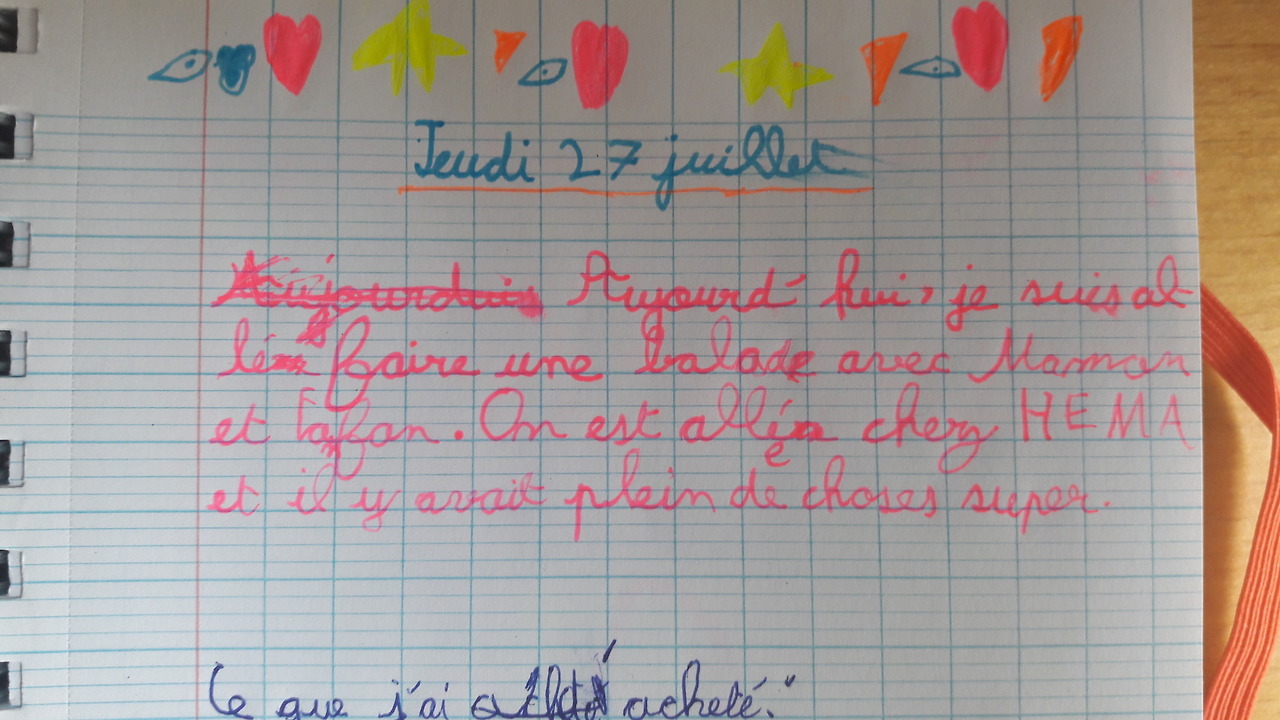 Jeudi 27 juillet
Aujourd'hui, je suis al
lé faire une balade avec Maman
et Tafan. On est allé chez HEMA
et il y avait plein de choses super.
Ce que j'ai acheté: